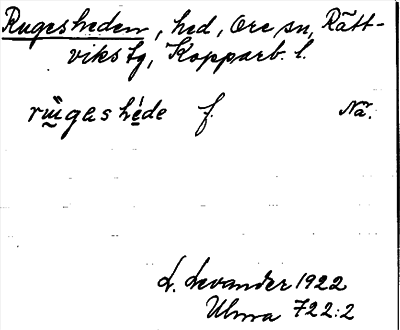 Rugesheden, hed, Ore sn, Rätt-
viks tg, Kopparb. l.
rùgeshéde f. Nä.
L. Levander 1922
Ulma 722:2